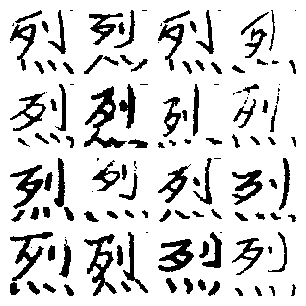 烈烈烈烈
烈烈烈烈
烈烈烈烈
烈烈烈烈